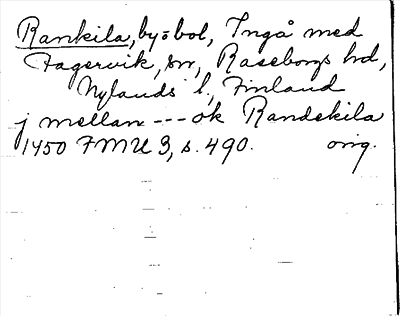 Rankila, by=bol, Ingå med
Fagervik, sn, Raseborgs hd,
Nylands l, Finland
j mellan --- ok Randekila
1450 FMU 3, s. 490. orig.